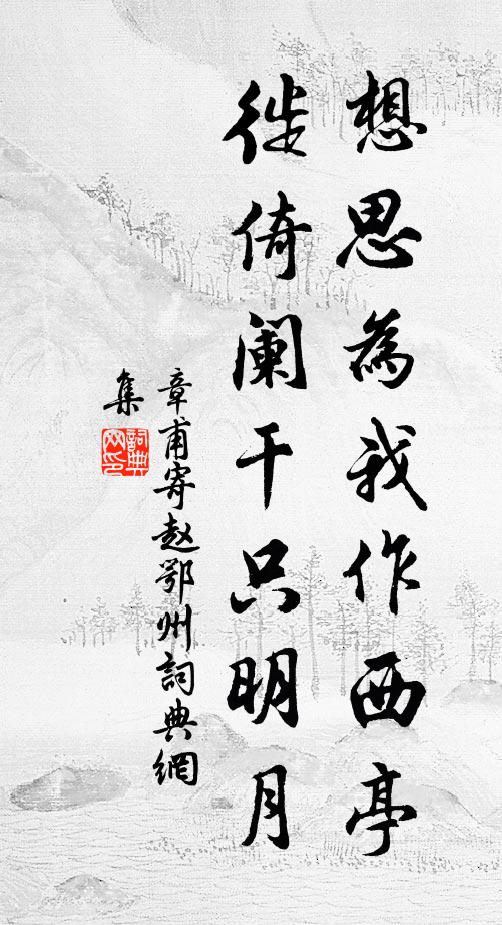 想思為我作西亭
徙倚阑干只明月
章甫寄赵鄂州詞典網
集
詞典網印